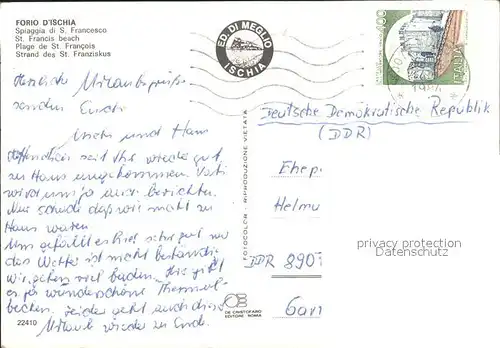 FORIO D'ISCHIA
Spiaggia di S. Francesco
St. Francis beach
Plage de St. François
Strand des St. Franziskus
ED. DI MEGLIO
ISCHIA
400
ITALIA
Herzliche Urlaubsgrüße
senden Euch
und Hans
Hoffentlich seid Ihr wieder gut
zu Haus angekommen. Vati
wird uns ja berichten.
Nur schade daß wir nicht zu
Haus waren.
Uns gefällt es hier sehr gut nur
das Wetter ist nicht beständig
wir gehen viel baden. Hier gibt
es ja wunderschöne Thermal-
becken. Leider geht auch dieser
Urlaub wieder zu Ende.
Deutsche Demokratische Republik
(DDR)
Ehep.
Helmu
DDR 890
privacy protection
Datenschutz
FOTOCOLOR - RIPRODUZIONE VIETATA
DE CRISTOFARO
EDITORE ROMA
22410